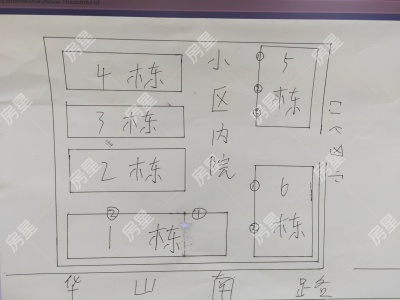 4 栋
3 栋
2 栋
② ①
1 栋
小区内院
① 5
②
③ 栋
① 6
② 栋
小区入口
华 山 南 路
房星
房星
房星
房星
房星
房星
房星
房星
房星